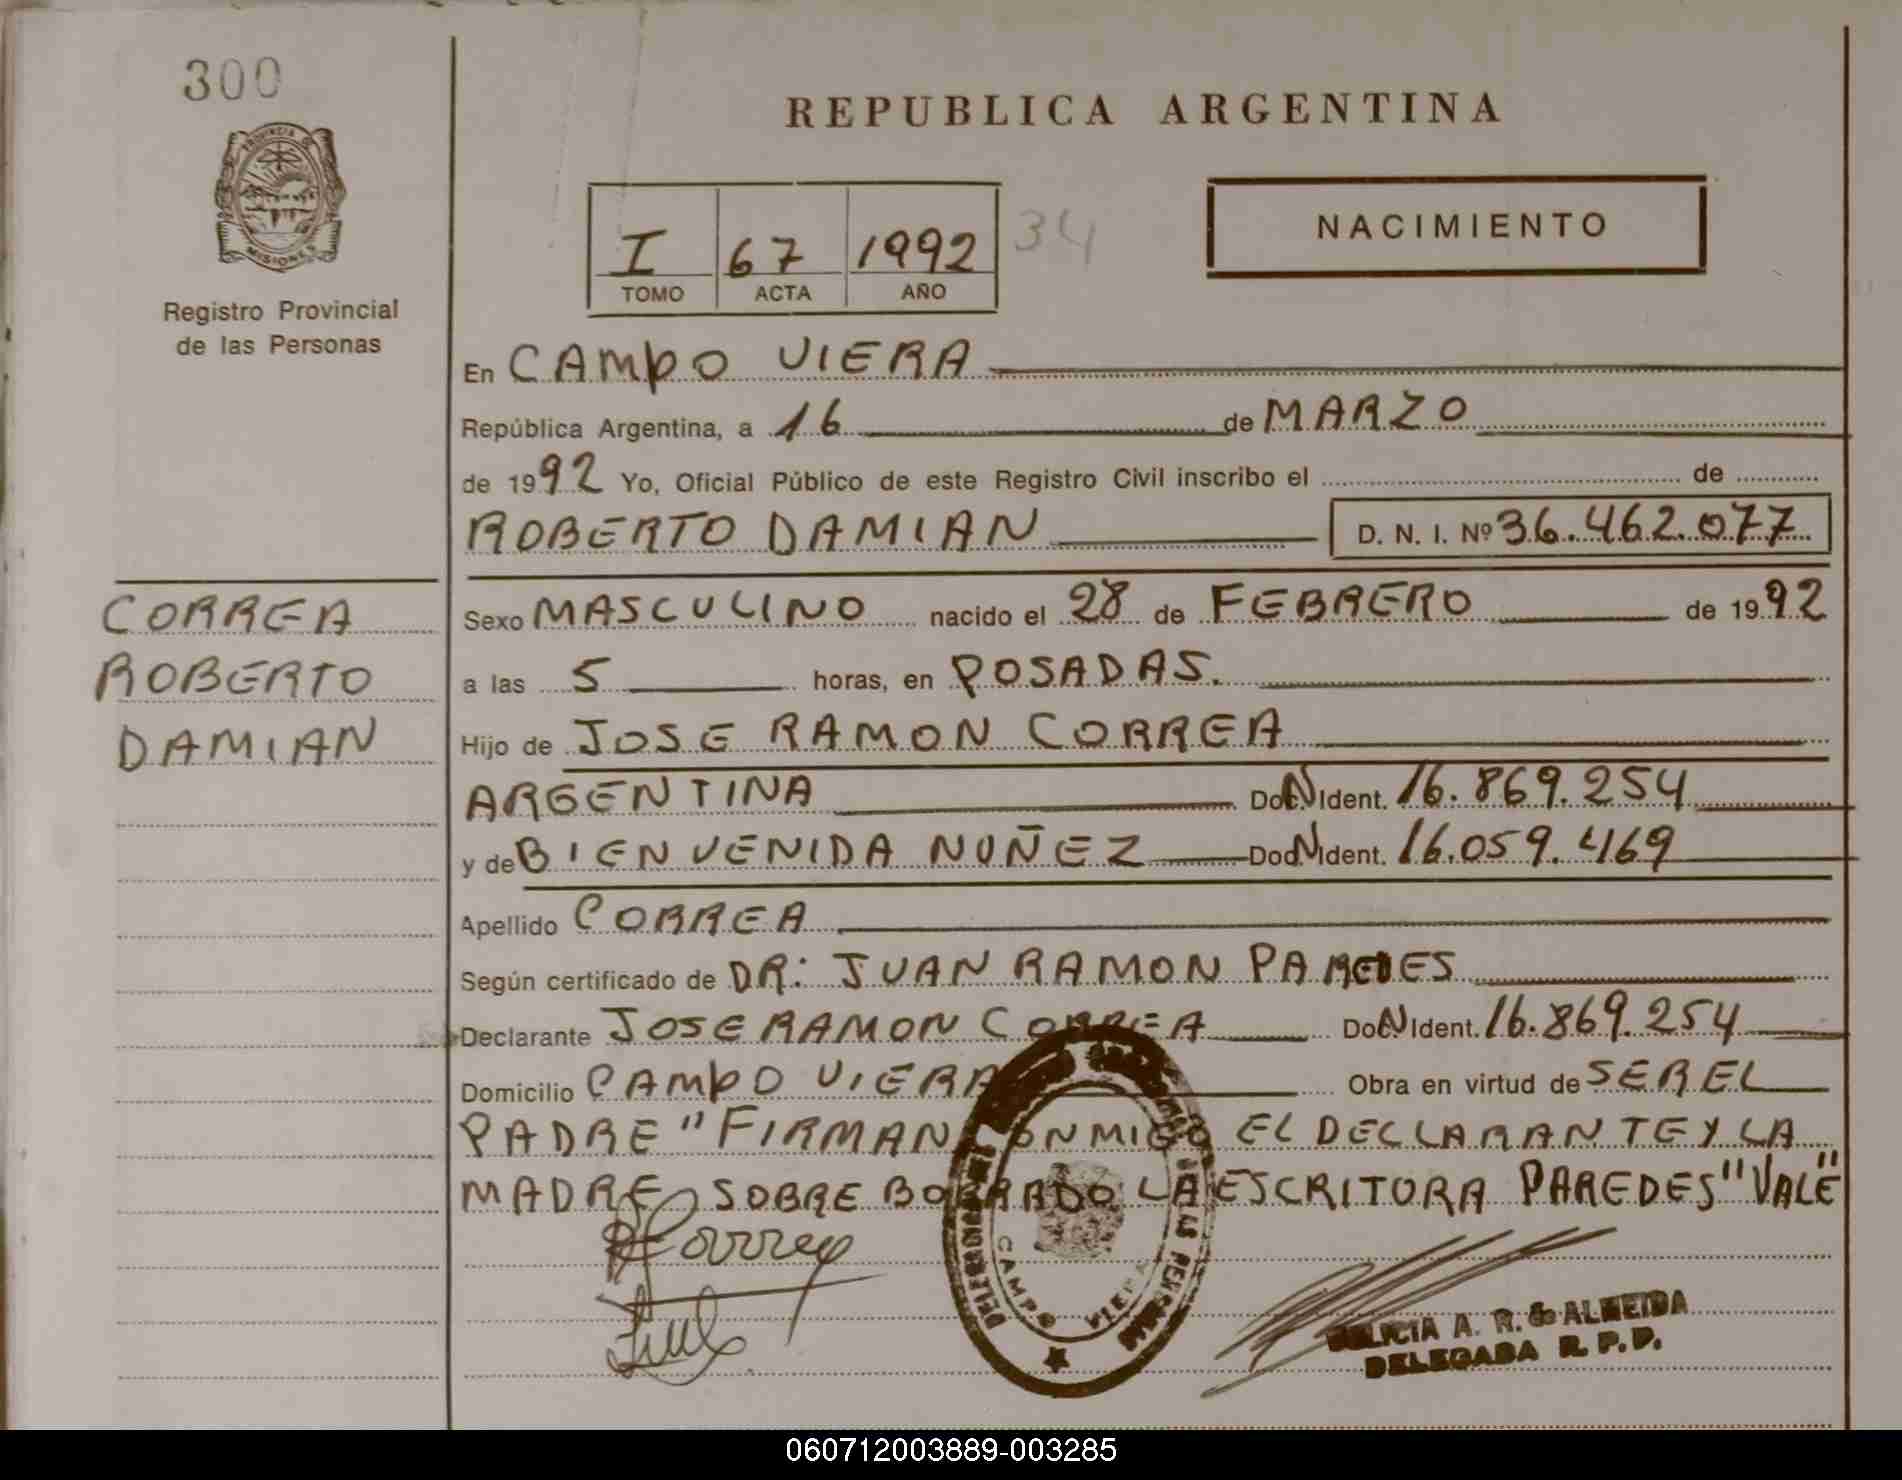 300
PROVINCIA DE
MISIONES
Registro Provincial
de las Personas
REPUBLICA ARGENTINA
I 67 1992 34
TOMO ACTA AÑO
NACIMIENTO
En CAMPO VIERA
República Argentina, a 16 de MARZO
de 1992 Yo, Oficial Público de este Registro Civil inscribo el de
ROBERTO DAMIAN D. N. I. Nº 36.462.077
CORREA
ROBERTO
DAMIAN
Sexo MASCULINO nacido el 28 de FEBRERO de 1992
a las 5 horas, en POSADAS.
Hijo de JOSE RAMON CORREA
ARGENTINA Doc. N Ident. 16.869.254
y de BIENVENIDA NUÑEZ Doc. N Ident. 16.059.469
Apellido CORREA
Según certificado de DR: JUAN RAMON PAREDES
Declarante JOSE RAMON CORREA Doc. N Ident. 16.869.254
Domicilio CAMPO VIERA Obra en virtud de SER EL
PADRE "FIRMAN CONMIGO EL DECLARANTE Y LA
MADRE SOBRE BORRADO LA ESCRITORA PAREDES "VALE"
Correa
CAMPO VIERA
DELICIA A. R. de ALMEIDA
DELEGADA R. P. P.
060712003889-003285